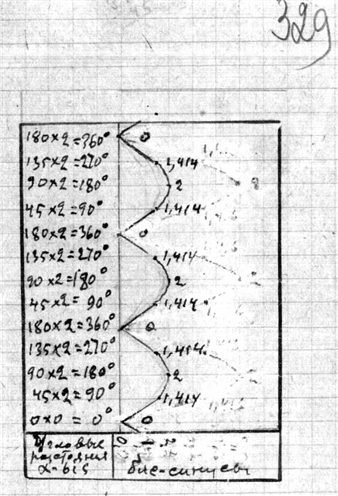 329
180×2=360° 0
135×2=270° 1,414
90×2=180° 2
45×2=90° 1,414
180×2=360° 0
135×2=270° 1,414
90×2=180° 2
45×2=90° 1,414
180×2=360° 0
135×2=270° 1,414
90×2=180° 2
45×2=90° 1,414
0×0=0° 0
Угловые
расстояния
био-синусы